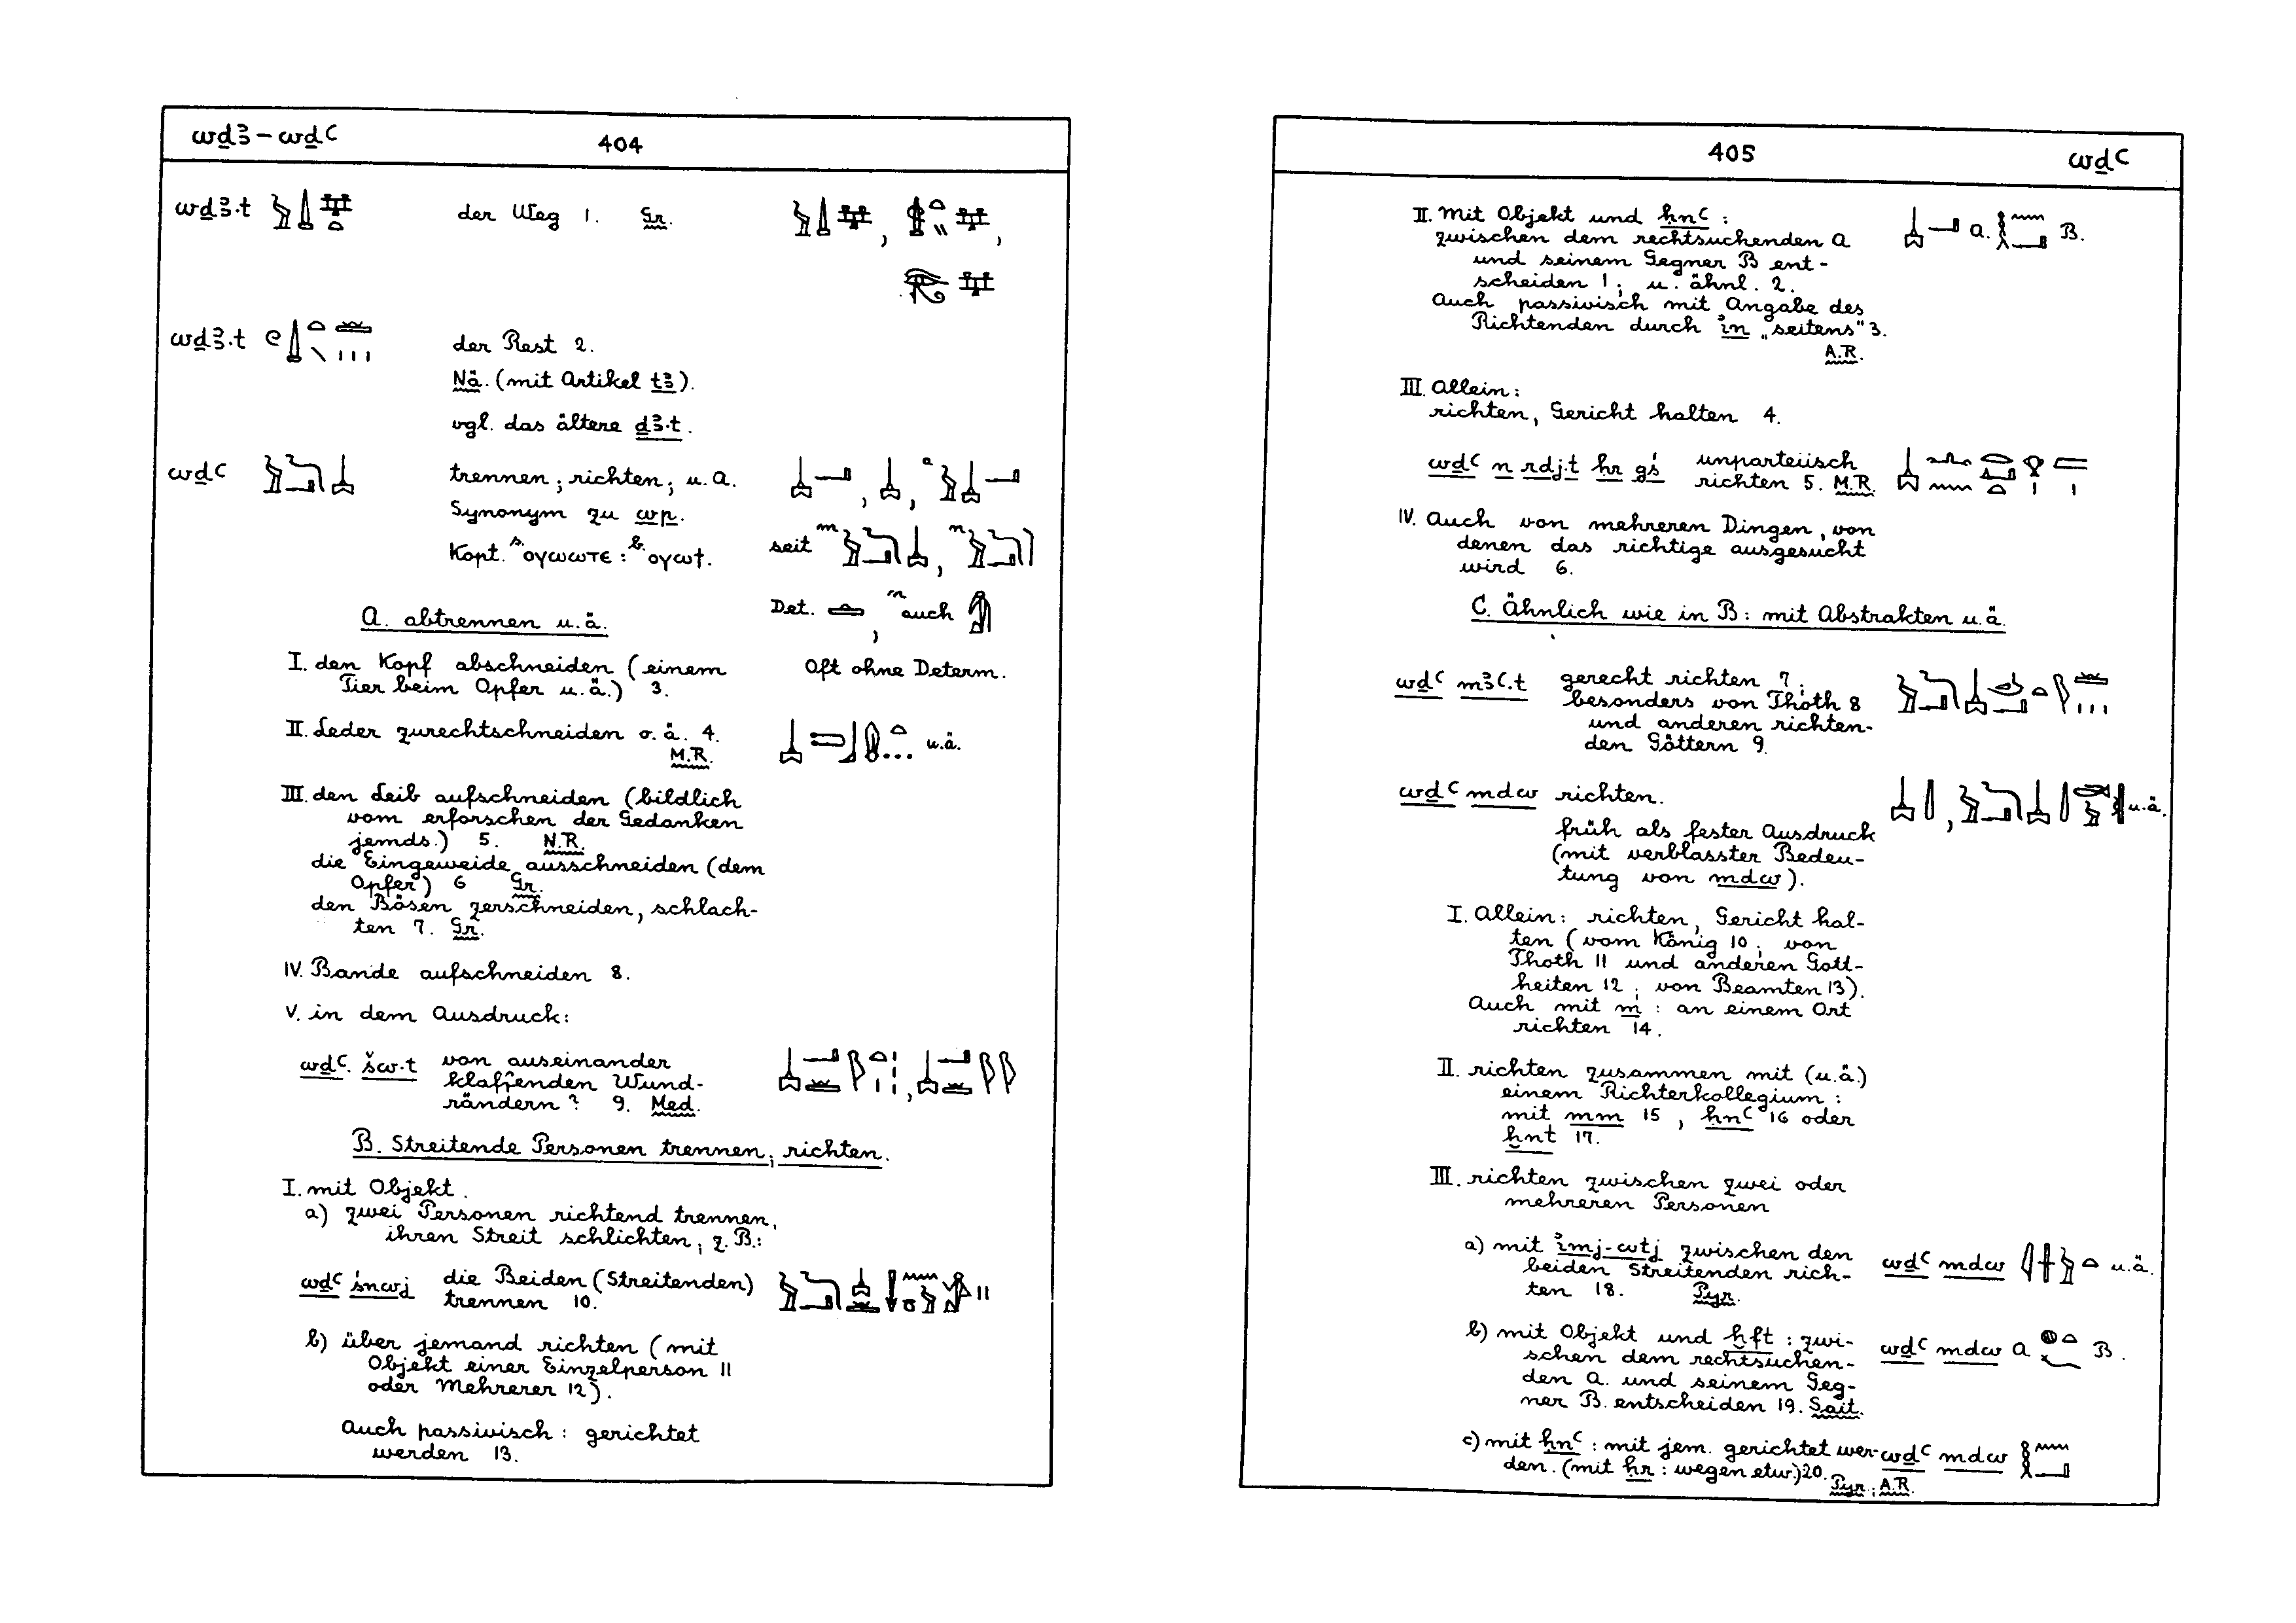 wḏꜣ – wḏꜥ 404
wḏꜣ.t der Weg 1. Gr.
wḏꜣ.t der Rest 2.
Nä. (mit Artikel tꜣ).
vgl. das ältere ḏꜣ.t.
wḏꜥ trennen; richten; u. a.
Synonym zu wp.
Kopt. s. ⲟⲩⲱⲱⲧⲉ : b. ⲟⲩⲱϯ. seit
Det. , auch
A. abtrennen u. ä.
I. den Kopf abschneiden (einem Oft ohne Determ.
Tier beim Opfer u. ä.) 3.
II. Leder zurechtschneiden o. ä. 4. u. ä.
M.R.
III. den Leib aufschneiden (bildlich
vom erforschen der Gedanken
jemds.) 5. N.R.
die Eingeweide ausschneiden (dem
Opfer) 6 Gr.
den Bösen zerschneiden, schlach-
ten 7. Gr.
IV. Bande aufschneiden 8.
V. in dem Ausdruck:
wḏꜥ šw.t von auseinander
klaffenden Wund-
rändern? 9. Med.
B. Streitende Personen trennen; richten.
I. mit Objekt.
a) zwei Personen richtend trennen,
ihren Streit schlichten; z. B.:
wḏꜥ śnwj die Beiden (Streitenden)
trennen 10.
b) über jemand richten (mit
Objekt einer Einzelperson 11
oder Mehrerer 12).
Auch passivisch: gerichtet
werden 13.
405 wḏꜥ
II. mit Objekt und ḥnꜥ : A. B.
zwischen dem rechtsuchenden A
und seinem Gegner B ent-
scheiden 1; u. ähnl. 2.
Auch passivisch mit Angabe des
Richtenden durch in „seitens" 3.
A.R.
III. Allein:
richten, Gericht halten 4.
wḏꜥ n rdj.t ḥr gś unparteiisch
richten 5. M.R.
IV. Auch von mehreren Dingen, von
denen das richtige ausgesucht
wird 6.
C. Ähnlich wie in B: mit Abstrakten u. ä.
wḏꜥ mꜣꜥ.t gerecht richten 7;
besonders von Thoth 8
und anderen richten-
den Göttern 9.
wḏꜥ mdw richten. u. ä.
früh als fester Ausdruck
(mit verblasster Bedeu-
tung von mdw).
I. Allein: richten, Gericht hal-
ten (vom König 10; von
Thoth 11 und anderen Gott-
heiten 12; von Beamten 13).
Auch mit m : an einem Ort
richten 14.
II. richten zusammen mit (u. ä.)
einem Richterkollegium :
mit mm 15, ḥnꜥ 16 oder
ḫnt 17.
III. richten zwischen zwei oder
mehreren Personen
a) mit imj-wtj zwischen den wḏꜥ mdw u. ä.
beiden Streitenden rich-
ten 18. Pyr.
b) mit Objekt und ḫft : zwi- wḏꜥ mdw A B.
schen dem rechtsuchen-
den A. und seinem Geg-
ner B. entscheiden 19. Sait.
c) mit ḥnꜥ : mit jem. gerichtet wer- wḏꜥ mdw
den. (mit ḥr : wegen etw.) 20.
Pyr; A.R.